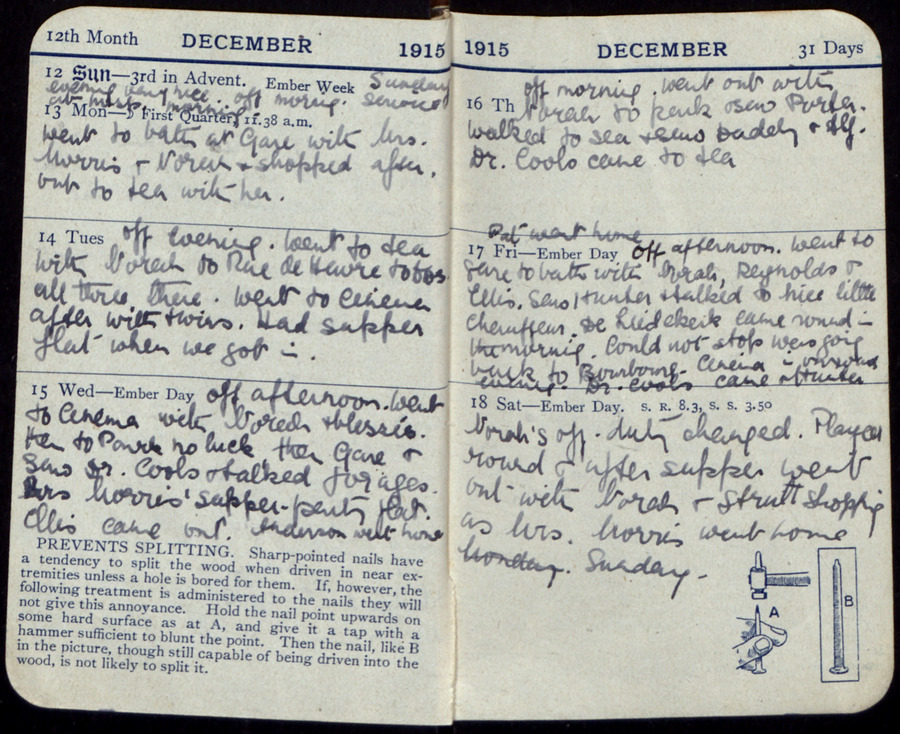 12th Month DECEMBER 1915
12 Sun—3rd in Advent. Ember Week Sunday
evening very nice. off morning. service
13 Mon—☽ First Quarter, 11.38 a.m.
went to bath at Gare with Mrs.
Morris + Norah + shopped after.
out to tea with her.
14 Tues off evening. Went to tea
with Norah to Rue de Havre
all three there. Went to Cinema
after with twins. Had supper
flat when we got in.
15 Wed—Ember Day off afternoon. Went
to Cinema with Norah +
then to no luck then Gare +
Saw Dr. Cools + talked for ages.
Mrs Morris' supper-party flat.
Ellis came out. Anderson went home
PREVENTS SPLITTING. Sharp-pointed nails have
a tendency to split the wood when driven in near ex-
tremities unless a hole is bored for them. If, however, the
following treatment is administered to the nails they will
not give this annoyance. Hold the nail point upwards on
some hard surface as at A, and give it a tap with a
hammer sufficient to blunt the point. Then the nail, like B
in the picture, though still capable of being driven into the
wood, is not likely to split it.
1915 DECEMBER 31 Days
16 Th off morning. went out with
Norah to park + saw Porter.
walked to sea + saw Daddy + Alf.
Dr. Cools came to tea
Pat went home
17 Fri—Ember Day off afternoon. Went to
Gare to bath with Norah, Reynolds +
Ellis. Saw Hunter + talked to nice little
Chauffeur. De came round in
the morning. Could not stop was going
back to Bourbourg. Cinema in
evening. Dr. Cools came + Hunter
18 Sat—Ember Day. S. R. 8.3, S. S. 3.50
Norah's off. duty changed. Played
round + after supper went
out with Norah + Strutt shopping
as Mrs. Morris went home
Monday. Sunday.
A
B